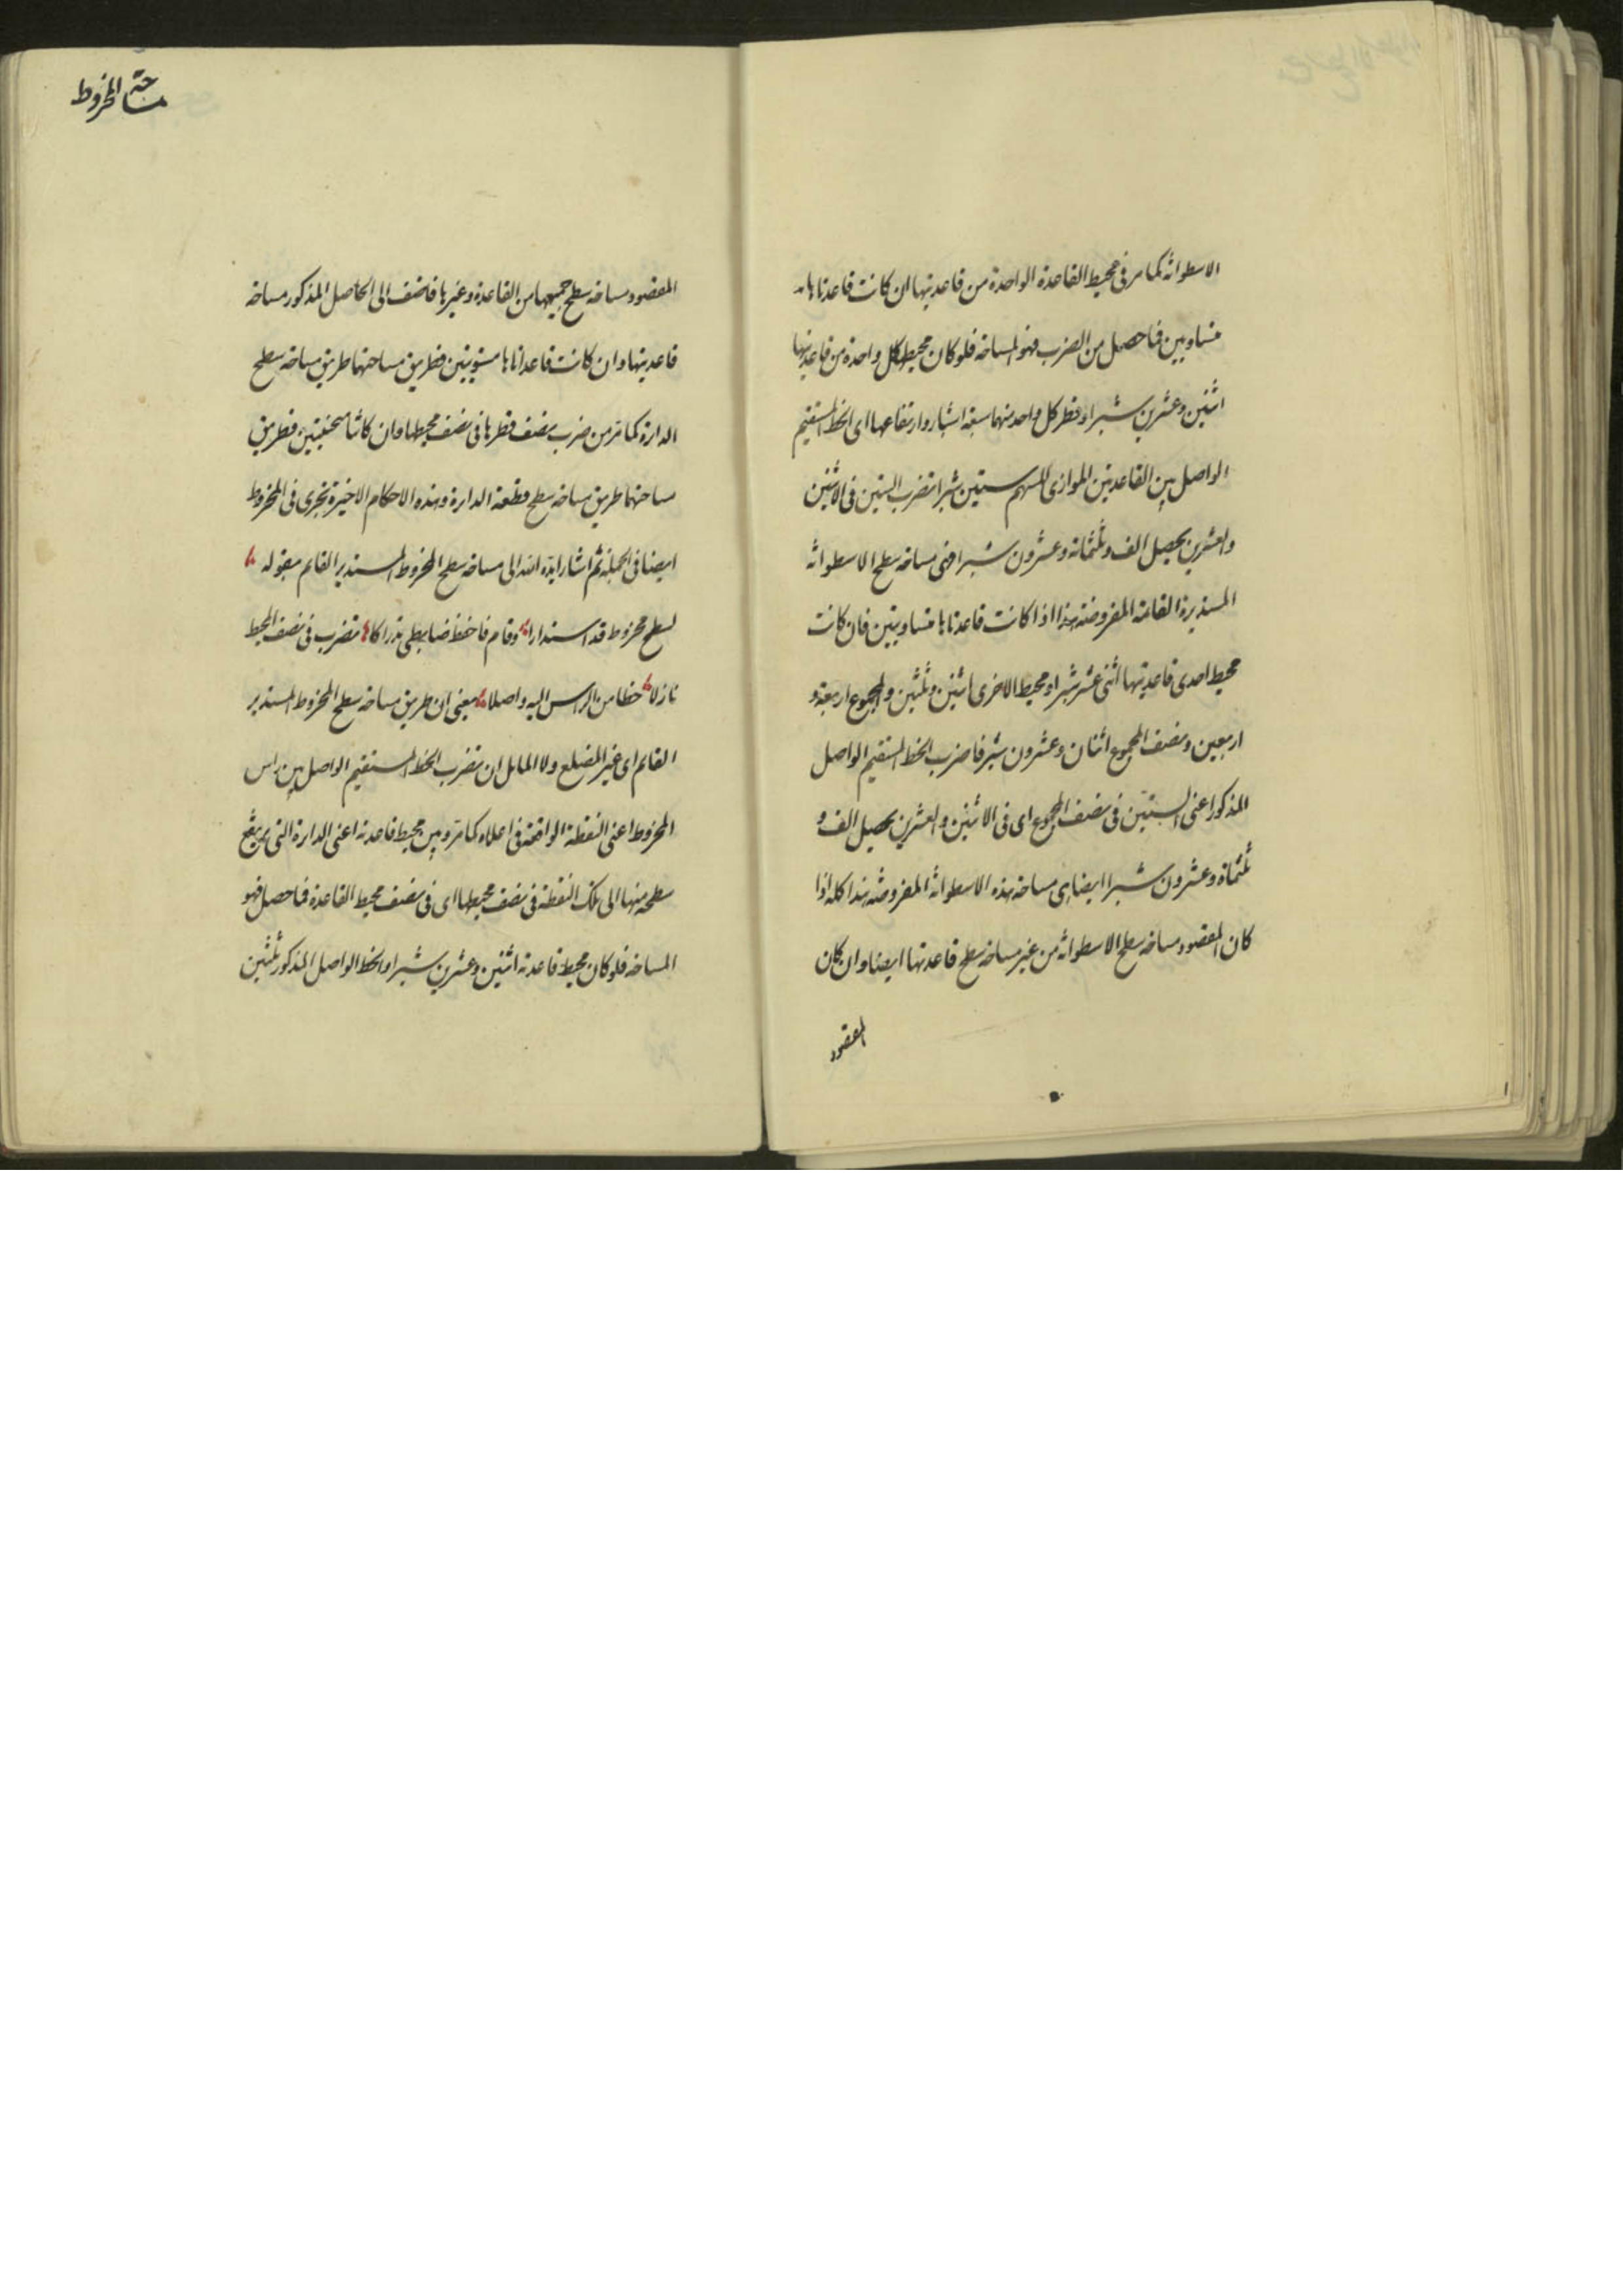 الاسطوانة كما مر في محيط القاعدة الواحدة من قاعدتيها ان كانت قاعدتاها
متساويين فما حصل من الضرب فهو المساحة فلو كان محيط كل واحدة من قاعدتيها
اثنين وعشرين شبرا وقطر كل واحد منهما سبعة اشبار وارتفاعها اى الخط المستقيم
الواصل بين القاعدتين الموازى للسهم ستين شبرا تضرب الستين في الاثنين
والعشرين يحصل الف وثلثمائة وعشرون شبرا فهى مساحة سطح الاسطوانة
المستديرة القائمة المفروضة هذا اذا كانت قاعدتاها متساويتين فان كانت
محيط احدى قاعدتيها اثنى عشر شبرا ومحيط الاخرى اثنين وثلثين والمجموع اربعة و
اربعين ونصف المجموع اثنان وعشرون شبر فاضرب الخط المستقيم الواصل
المذكور اعنى الستين في نصف المجموع اى في الاثنين والعشرين يحصل الف و
ثلثمائة وعشرون شبرا ايضا هى مساحة هذه الاسطوانة المفروضة هذا كله اذا
كان المقصود مساحة سطح الاسطوانة من غير مساحة سطح قاعدتها ايضا وان كان
المقصود
مساحة المخروط
المقصود مساحة سطح جميعها من القاعدة وغيرها فاضف الى الحاصل المذكور مساحة
قاعدتيها وان كانت قاعداتاها مستويتين فطريق مساحتهما طريق مساحة سطح
الدائرة كما مر من ضرب نصف قطرها في نصف محيطها وان كانتا منحنيتين فطريق
مساحتهما طريق مساحة سطح قطعة الدائرة وهذه الاحكام الاخيرة تجرى في المخروط
ايضا في الجملة ثم اشار ايده الله الى مساحة سطح المخروط المستدير القائم بقوله
لسطح مخروط قد استدارا وقام فاحفظ ضابطى تضرب في نصف المحيط
نازلا خطا من الراس اليه واصلا يعنى ان طريق مساحة سطح المخروط المستدير
القائم اى غير المضلع ولا المائل ان تضرب الخط المستقيم الواصل بين راس
المخروط اعنى النقطة الواقعة في اعلاه كما مر وبين محيط قاعدته اعنى الدائرة التى يرتفع
سطحه منها الى تلك النقطة في نصف محيطها اى في نصف محيط القاعدة فما حصل فهو
المساحة فلو كان محيط قاعدته اثنين وعشرين شبرا والخط الواصل المذكور ثلثين